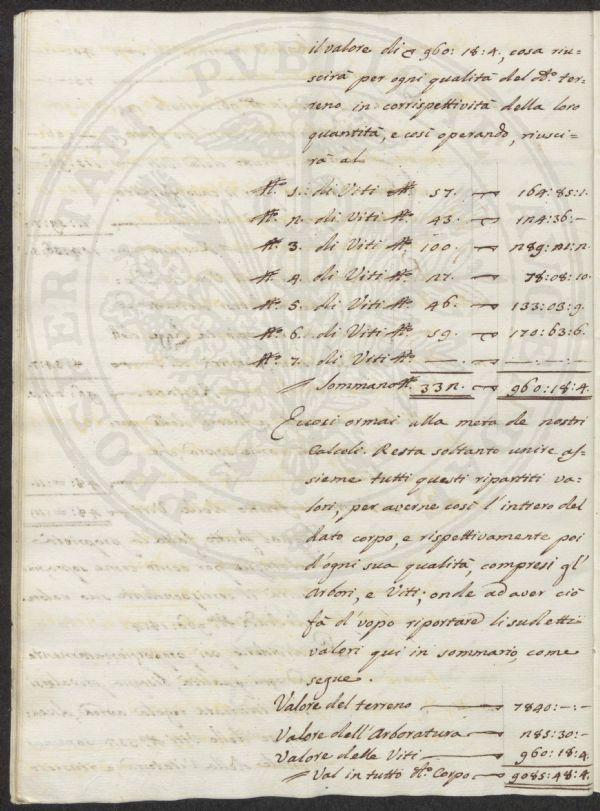 il valore di ꝸ 960: 18: 4., cosa riu=
scirà per ogni qualità del d.° ter=
reno in corrispettività della loro
quantità, e così operando, riusci=
rà al
N.° 1. di Viti N.° 57. — 164:85:1.
N.° 2. di Viti N.° 43. — 124:36:–
N.° 3. di Viti N.° 100. — 289:21:2.
N.° 4. di Viti N.° 27. — 78:08:10.
N.° 5. di Viti N.° 46. — 133:03:9.
N.° 6. di Viti N.° 59. — 170:63:6.
N.° 7. di Viti N.° —. — —:—:—
Sommano N.° 332. — 960:18:4.
Eccosi ormai alla meta de nostri
Calcoli. Resta soltanto unire as=
sieme tutti questi ripartiti va=
lori, per averne così l'intiero del
dato corpo, e rispettivamente poi
d'ogni sua qualità, compresi gl'
Arbori, e Viti; onde ad aver ciò
fà d'vopo riportare li sudetti
valori qui in sommario, come
segue.
Valore del terreno — 7840:–:–
Valore dell'Arboratura — 285:30:–
Valore delle Viti — 960:18:4.
Val in tutto d.° Corpo — 9085:48:4.
PROSPERITATI PVBLICAE